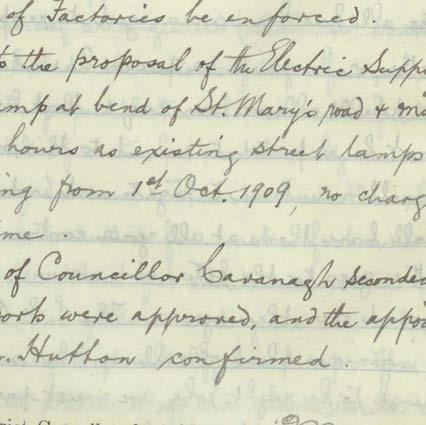 of Factories be enforced.
to the proposal of the Electric Supp
amp at bend of St. Mary's road &
hours as existing street lamps
ing from 1st Oct. 1909, no charg
ime.
of Councillor Cavanagh seconded
orts were approved, and the appo
Hutton confirmed.